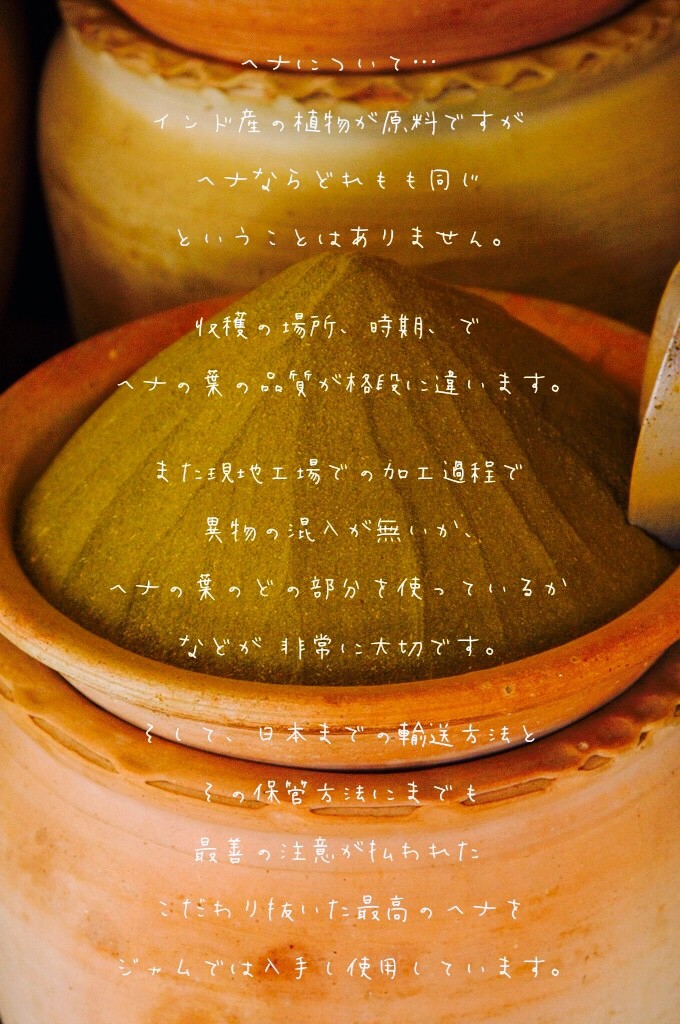 ヘナについて…
インド産の植物が原料ですが
ヘナならどれもも同じ
ということはありません。
収穫の場所、時期、で
ヘナの葉の品質が格段に違います。
また現地工場での加工過程で
異物の混入が無いか、
ヘナの葉のどの部分を使っているか
などが 非常に大切です。
そして、日本までの輸送方法と
その保管方法にまでも
最善の注意が払われた
こだわり抜いた最高のヘナを
ジャムでは入手し使用しています。